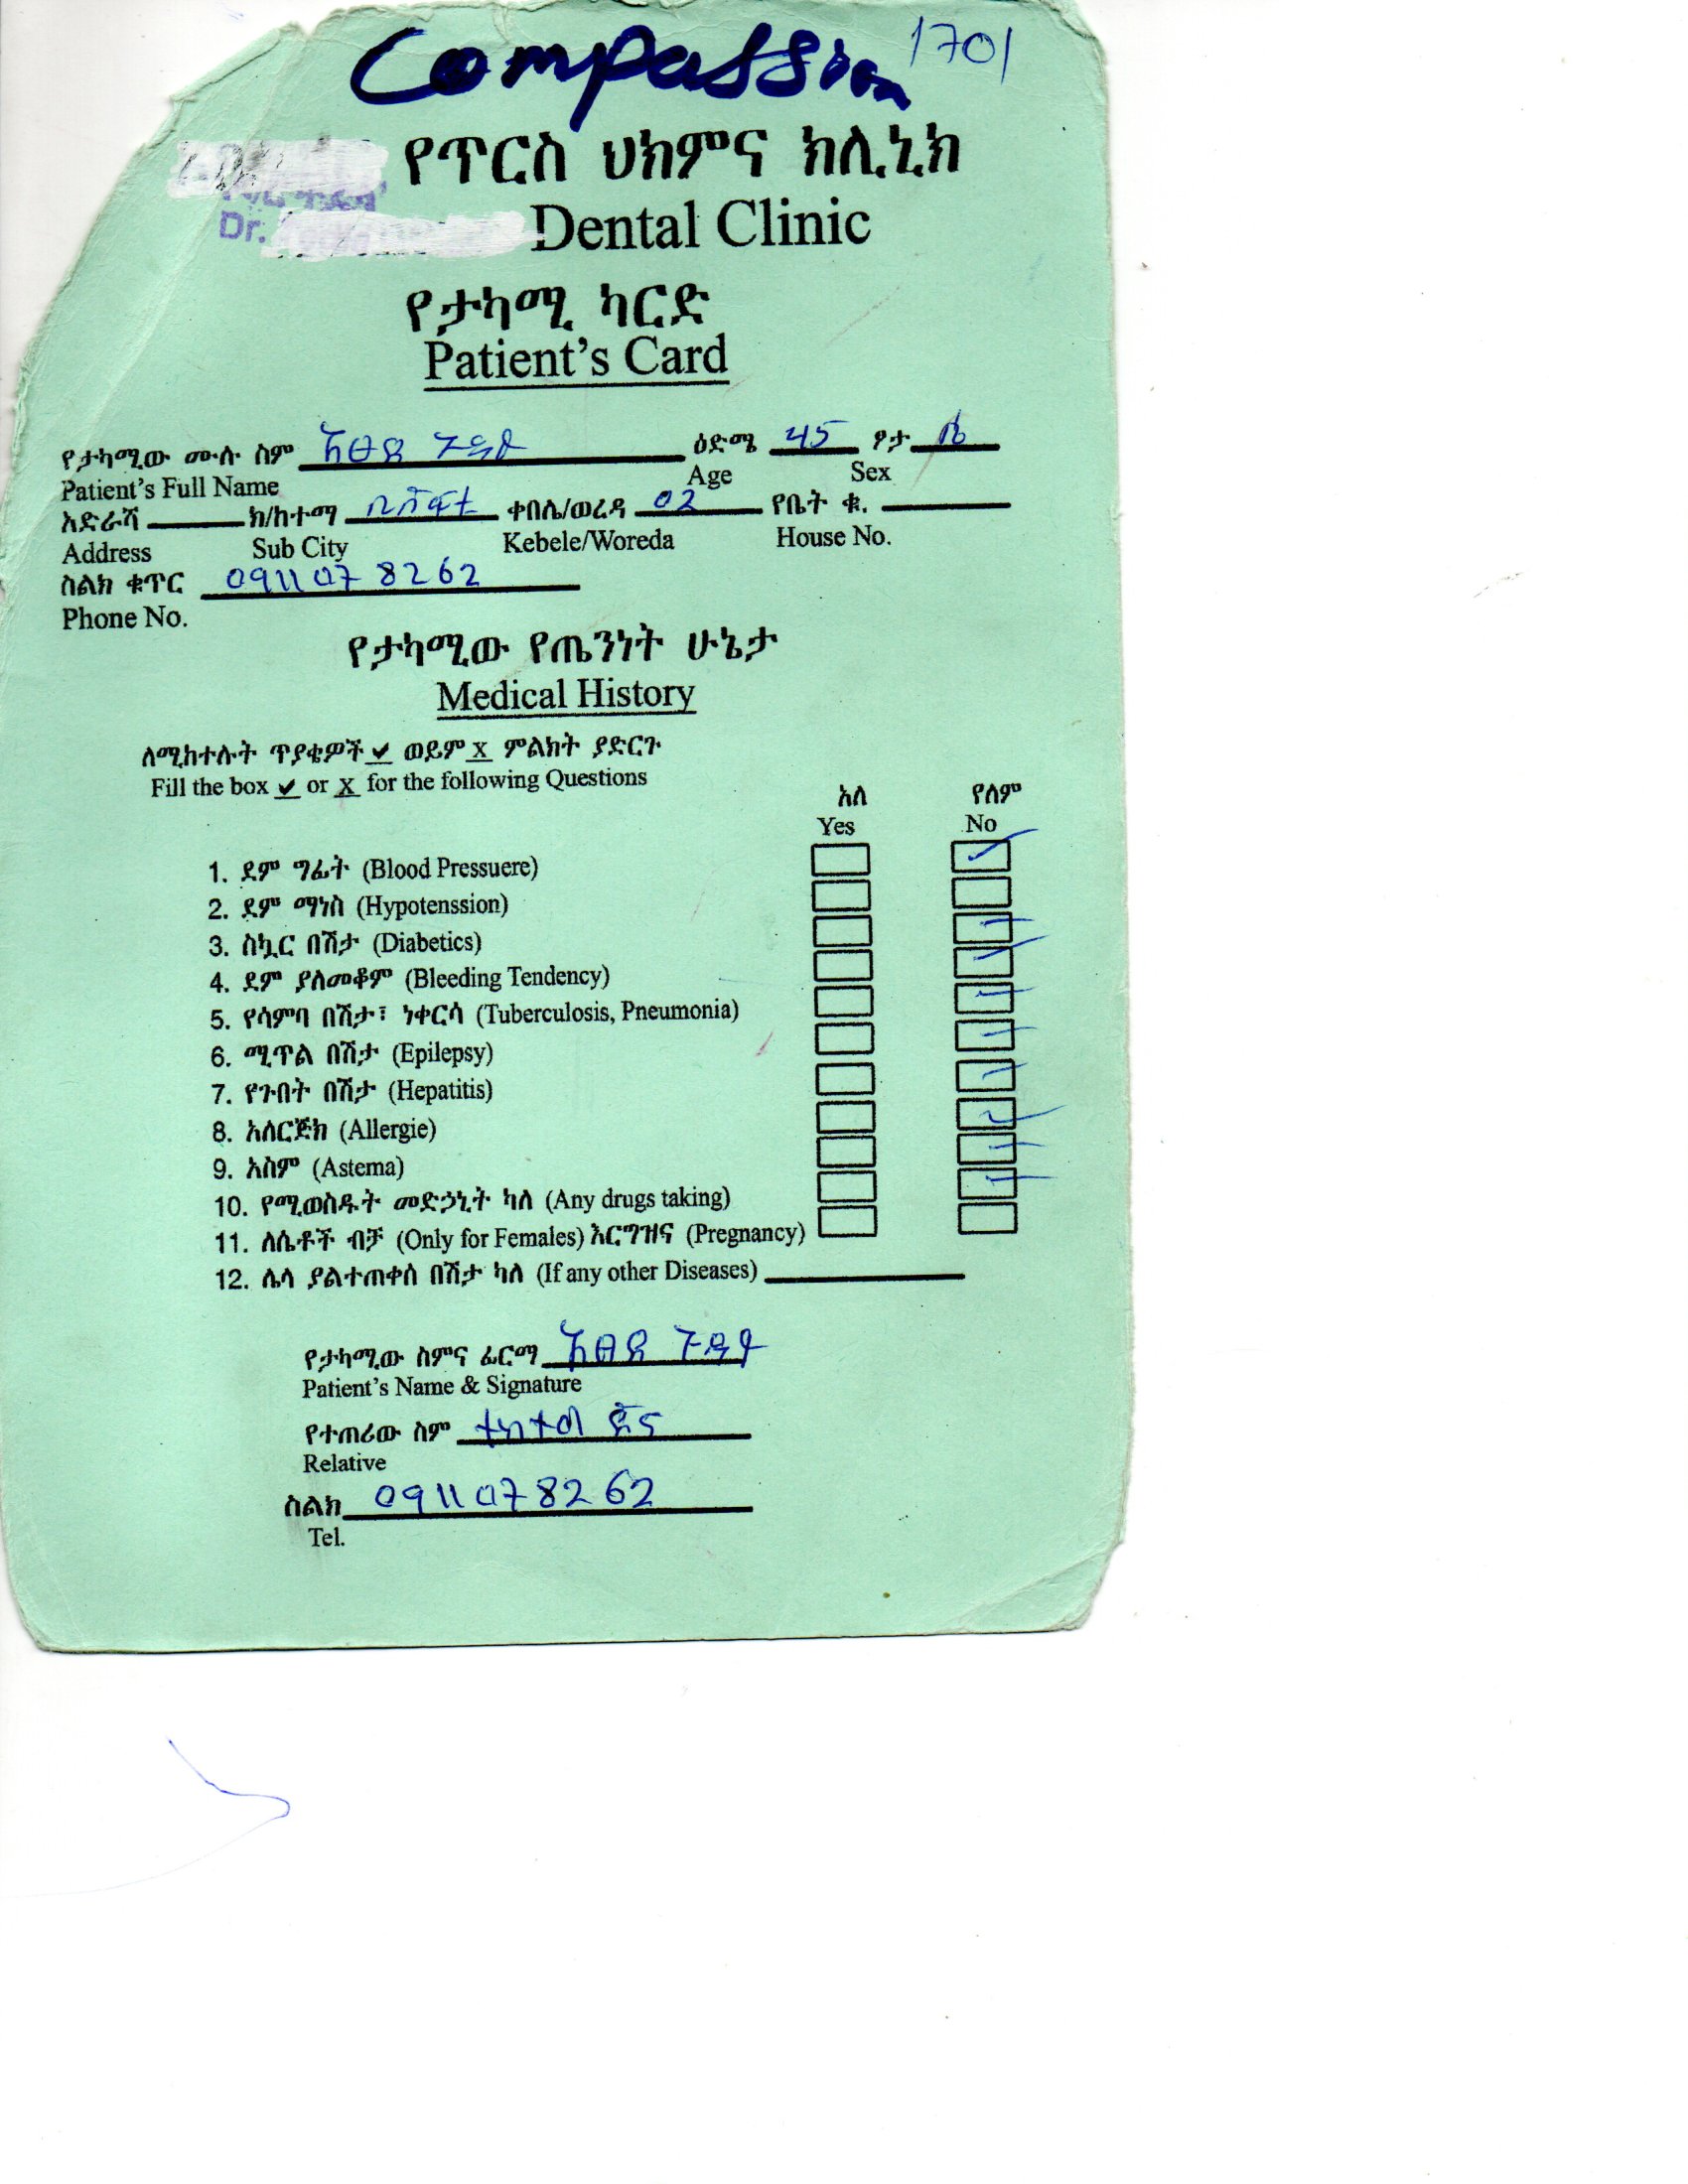 Compassion 1701
የጥርስ ህክምና ክሊኒክ
Dr. Dental Clinic
የታካሚ ካርድ
Patient's Card
የታካሚው ሙሉ ስም ዕድሜ 45 ፆታ ሴ
Patient's Full Name Age Sex
አድራሻ ክ/ከተማ ቢሾፍቱ ቀበሌ/ወረዳ 02 የቤት ቁ.
Address Sub City Kebele/Woreda House No.
ስልክ ቁጥር 0911078262
Phone No.
የታካሚው የጤንነት ሁኔታ
Medical History
ለሚከተሉት ጥያቄዎች ✔ ወይም x ምልክት ያድርጉ
Fill the box ✔ or X for the following Questions
አለ የለም
Yes No
1. ደም ግፊት (Blood Pressuere)
2. ደም ማነስ (Hypotenssion)
3. ስኳር በሽታ (Diabetics)
4. ደም ያለመቆም (Bleeding Tendency)
5. የሳምባ በሽታ፣ ነቀርሳ (Tuberculosis, Pneumonia)
6. ሚጥል በሽታ (Epilepsy)
7. የጉበት በሽታ (Hepatitis)
8. አለርጅክ (Allergie)
9. አስም (Astema)
10. የሚወስዱት መድኃኒት ካለ (Any drugs taking)
11. ለሴቶች ብቻ (Only for Females) እርግዝና (Pregnancy)
12. ሌላ ያልተጠቀሰ በሽታ ካለ (If any other Diseases)
የታካሚው ስምና ፊርማ
Patient's Name & Signature
የተጠሪው ስም
Relative
ስልክ 0911078262
Tel.